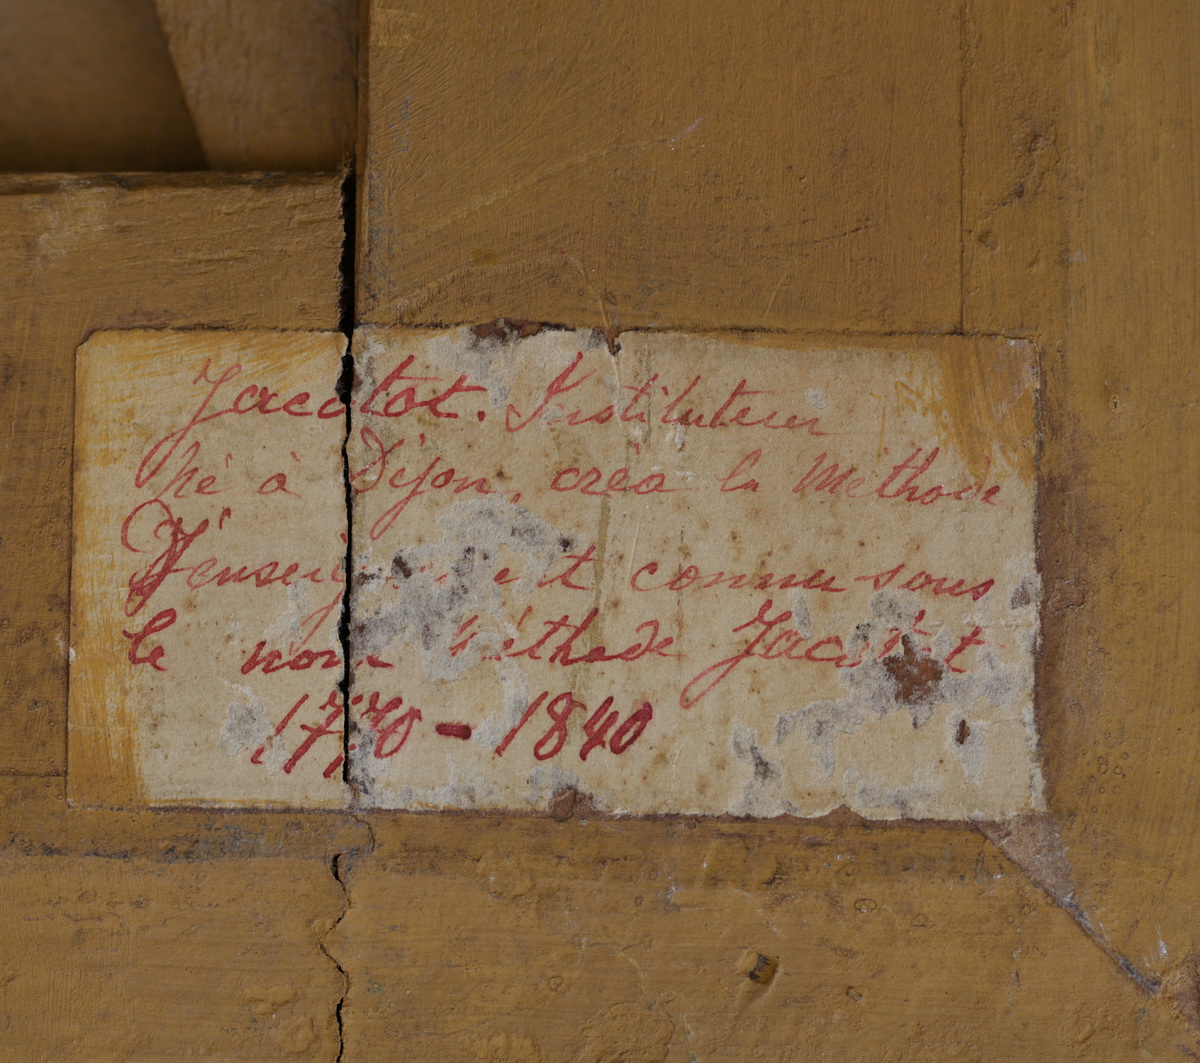 Jacotot. Instituteur
Né à Dijon, créa la Méthode
D'enseignement connu sous
le nom Méthode Jacotot
1770 - 1840